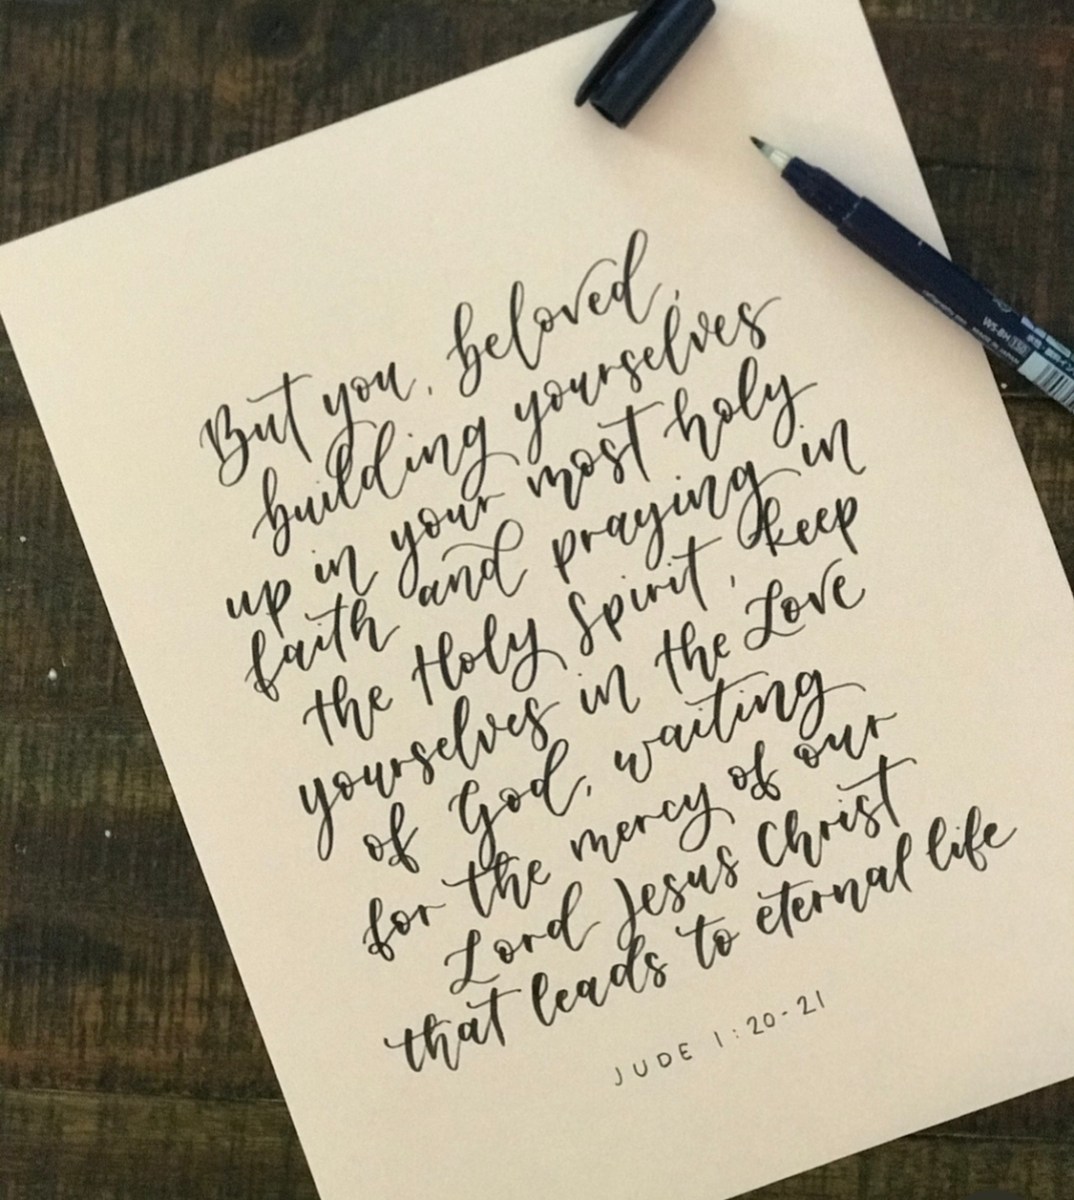 But you, beloved,
building yourselves
up in your most holy
faith and praying in
the Holy Spirit, keep
yourselves in the Love
of God, waiting
for the mercy of our
Lord Jesus Christ
that leads to eternal life
JUDE 1:20-21
WS-BH